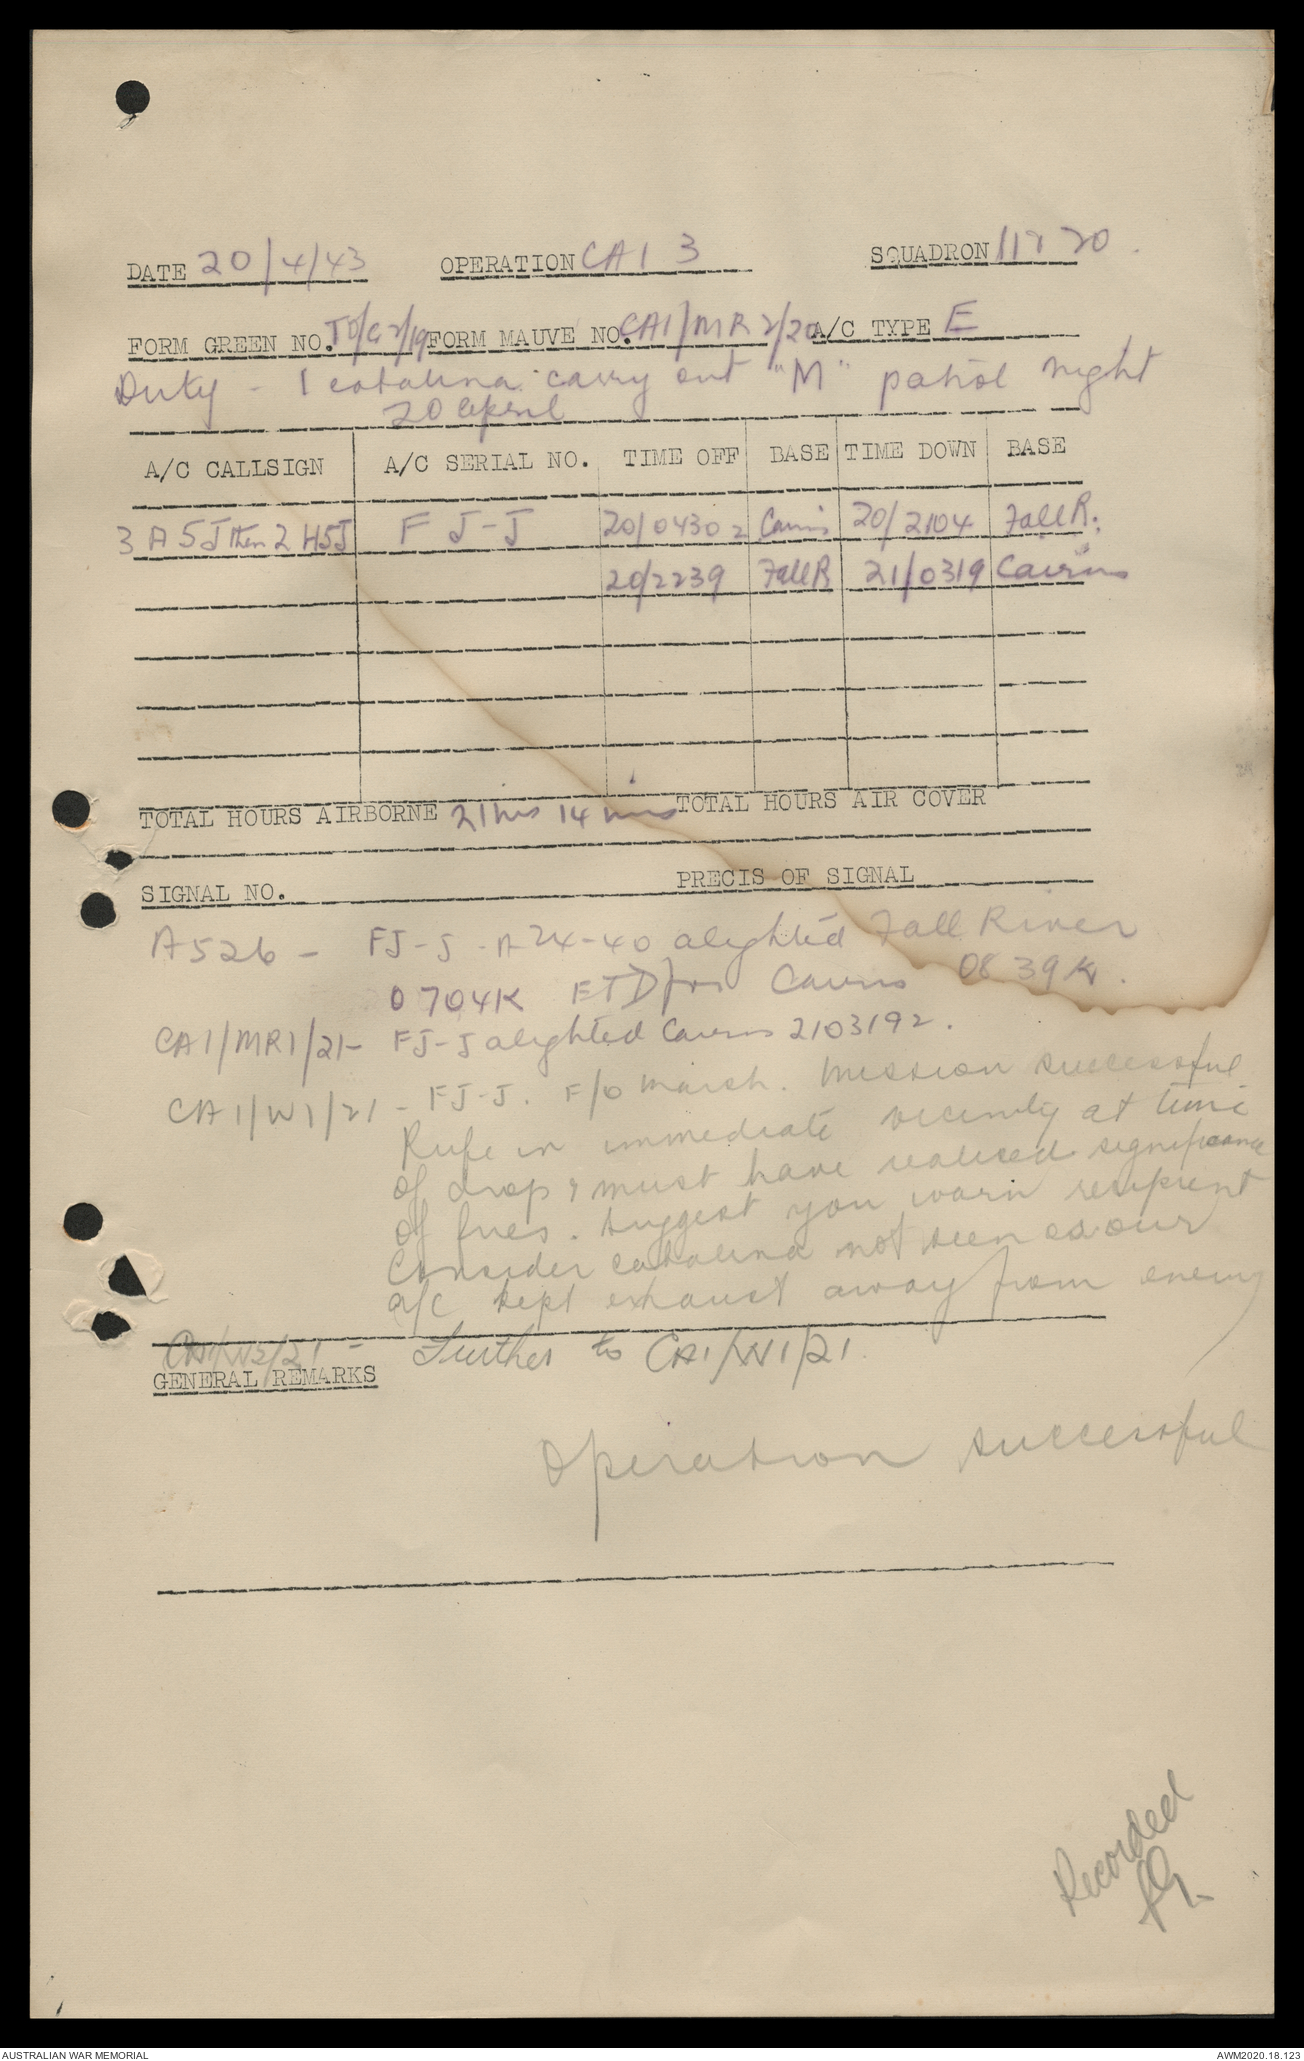 DATE 20/4/43 OPERATION CA1 3 SQUADRON 11 & 20.
FORM GREEN NO. TD/G2/19 FORM MAUVE NO. CA1/MR2/20 A/C TYPE E
Duty - 1 catalina carry out "M" patrol night
20 April
A/C CALLSIGN A/C SERIAL NO. TIME OFF BASE TIME DOWN BASE
3A5J then 2H5J FJ-J 20/0430z Cairns 20/2104 Fall R.
20/2239 Fall R 21/0319 Cairns
TOTAL HOURS AIRBORNE 21 hrs 14 mins TOTAL HOURS AIR COVER
SIGNAL NO. PRECIS OF SIGNAL
A526 - FJ-J A24-40 alighted Fall River
0704K ETD for Cairns 0839K.
CA1/MR1/21- FJ-J alighted Cairns 210319z.
CA1/W1/21 - FJ-J. F/O Marsh. Mission successful
Rufe in immediate vicinity at time
of drop & must have realised significance
of fires. Suggest you warn recipient
Consider catalina not seen as our
a/c kept exhaust away from enemy
CA1/W2/21 - Further to CA1/W1/21
GENERAL REMARKS
Operation successful
Recorded
AUSTRALIAN WAR MEMORIAL AWM2020.18.123